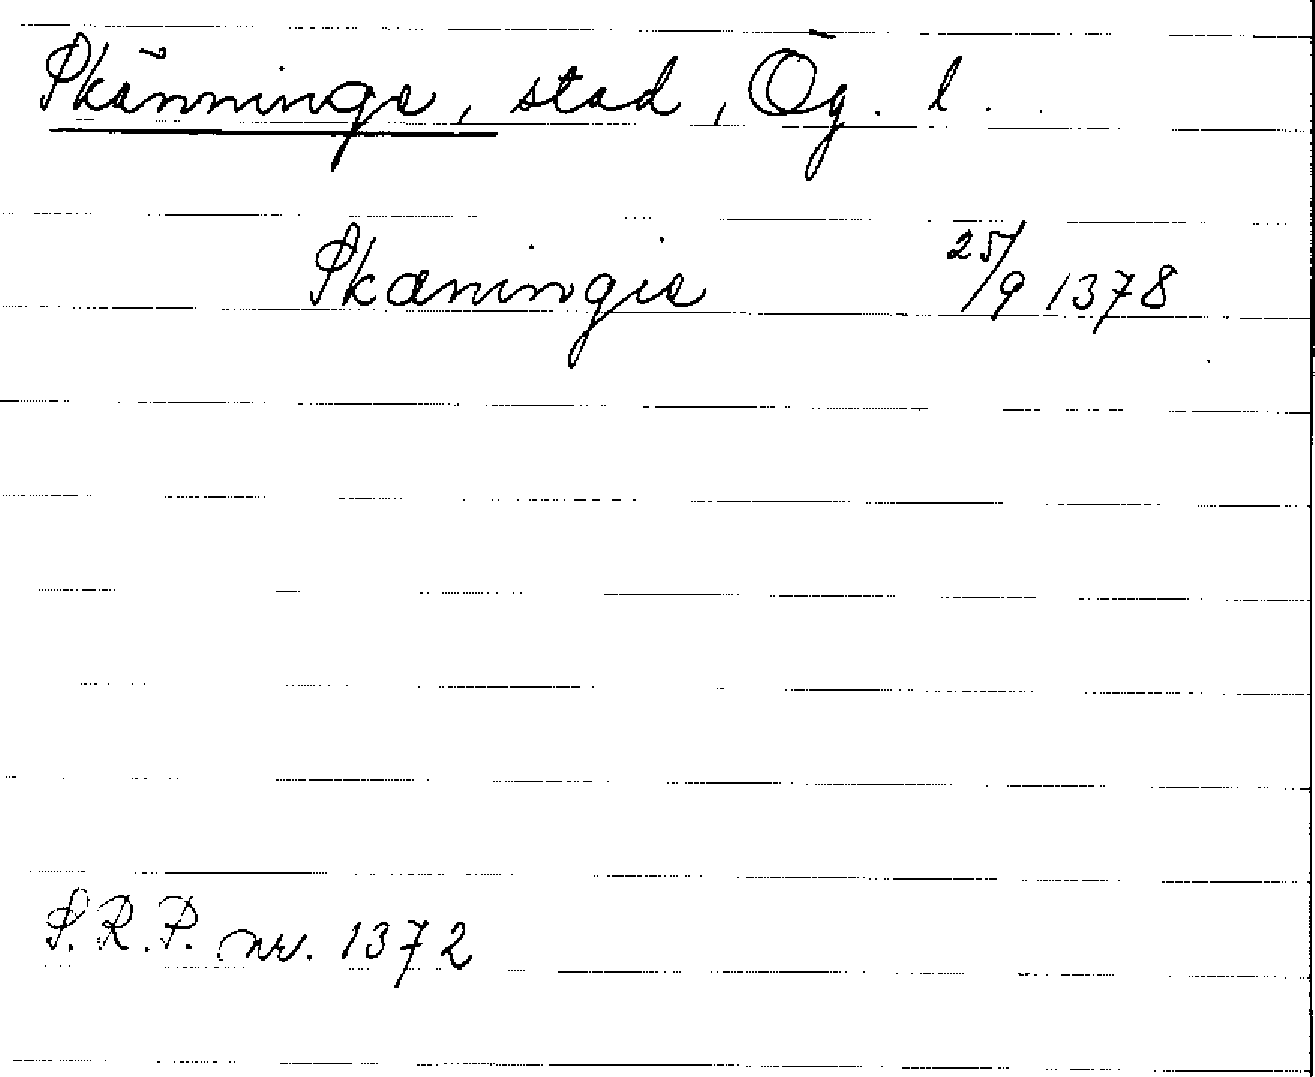 Skänninge, stad, Ög. l.
Skæningie 25/9 1378
S.R.P. nr. 1372